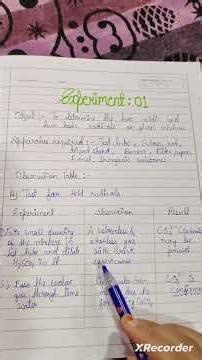 Experiment: 01
Object:- To determine the two acidic and
two basic radicals in given mixture
Apparatus required:- Test tube, Glass rod,
Tripod stand, Burner, Filter paper,
Observation Table:-
A) Test for Acid radicals.
Experiment
Observation
Result
small quantity
of the mixture in
test tube and dilute
H2SO4 to it
A colourless &
odourless gas
with brisk
effervescence
CO3²⁻ Carbonate
may be
present
Pass the evolve
gas through lime
water
CO3²⁻ is
Confirmed
XRecorder